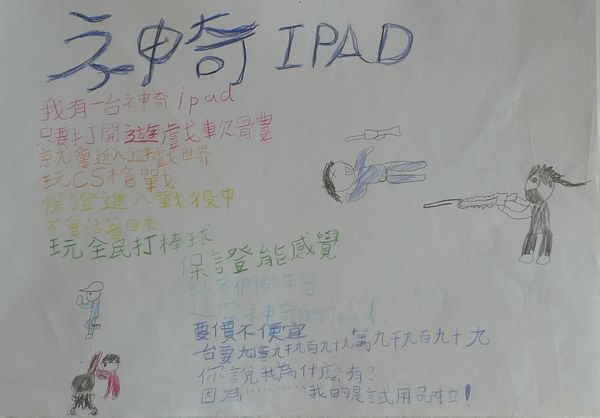 神奇 IPAD
我有一台神奇ipad
只要打開遊戲軟體
就會進入遊戲世界
玩CS槍戰
保證進入戰役中
不會活著回來
玩全民打棒球
保證能感覺
球員們的辛苦
這麼神奇的ipad
要價不便宜
台要九億九千九百九十九萬九千九百九十九
你說我為什麼有?
因為…………我的是試用品啦!